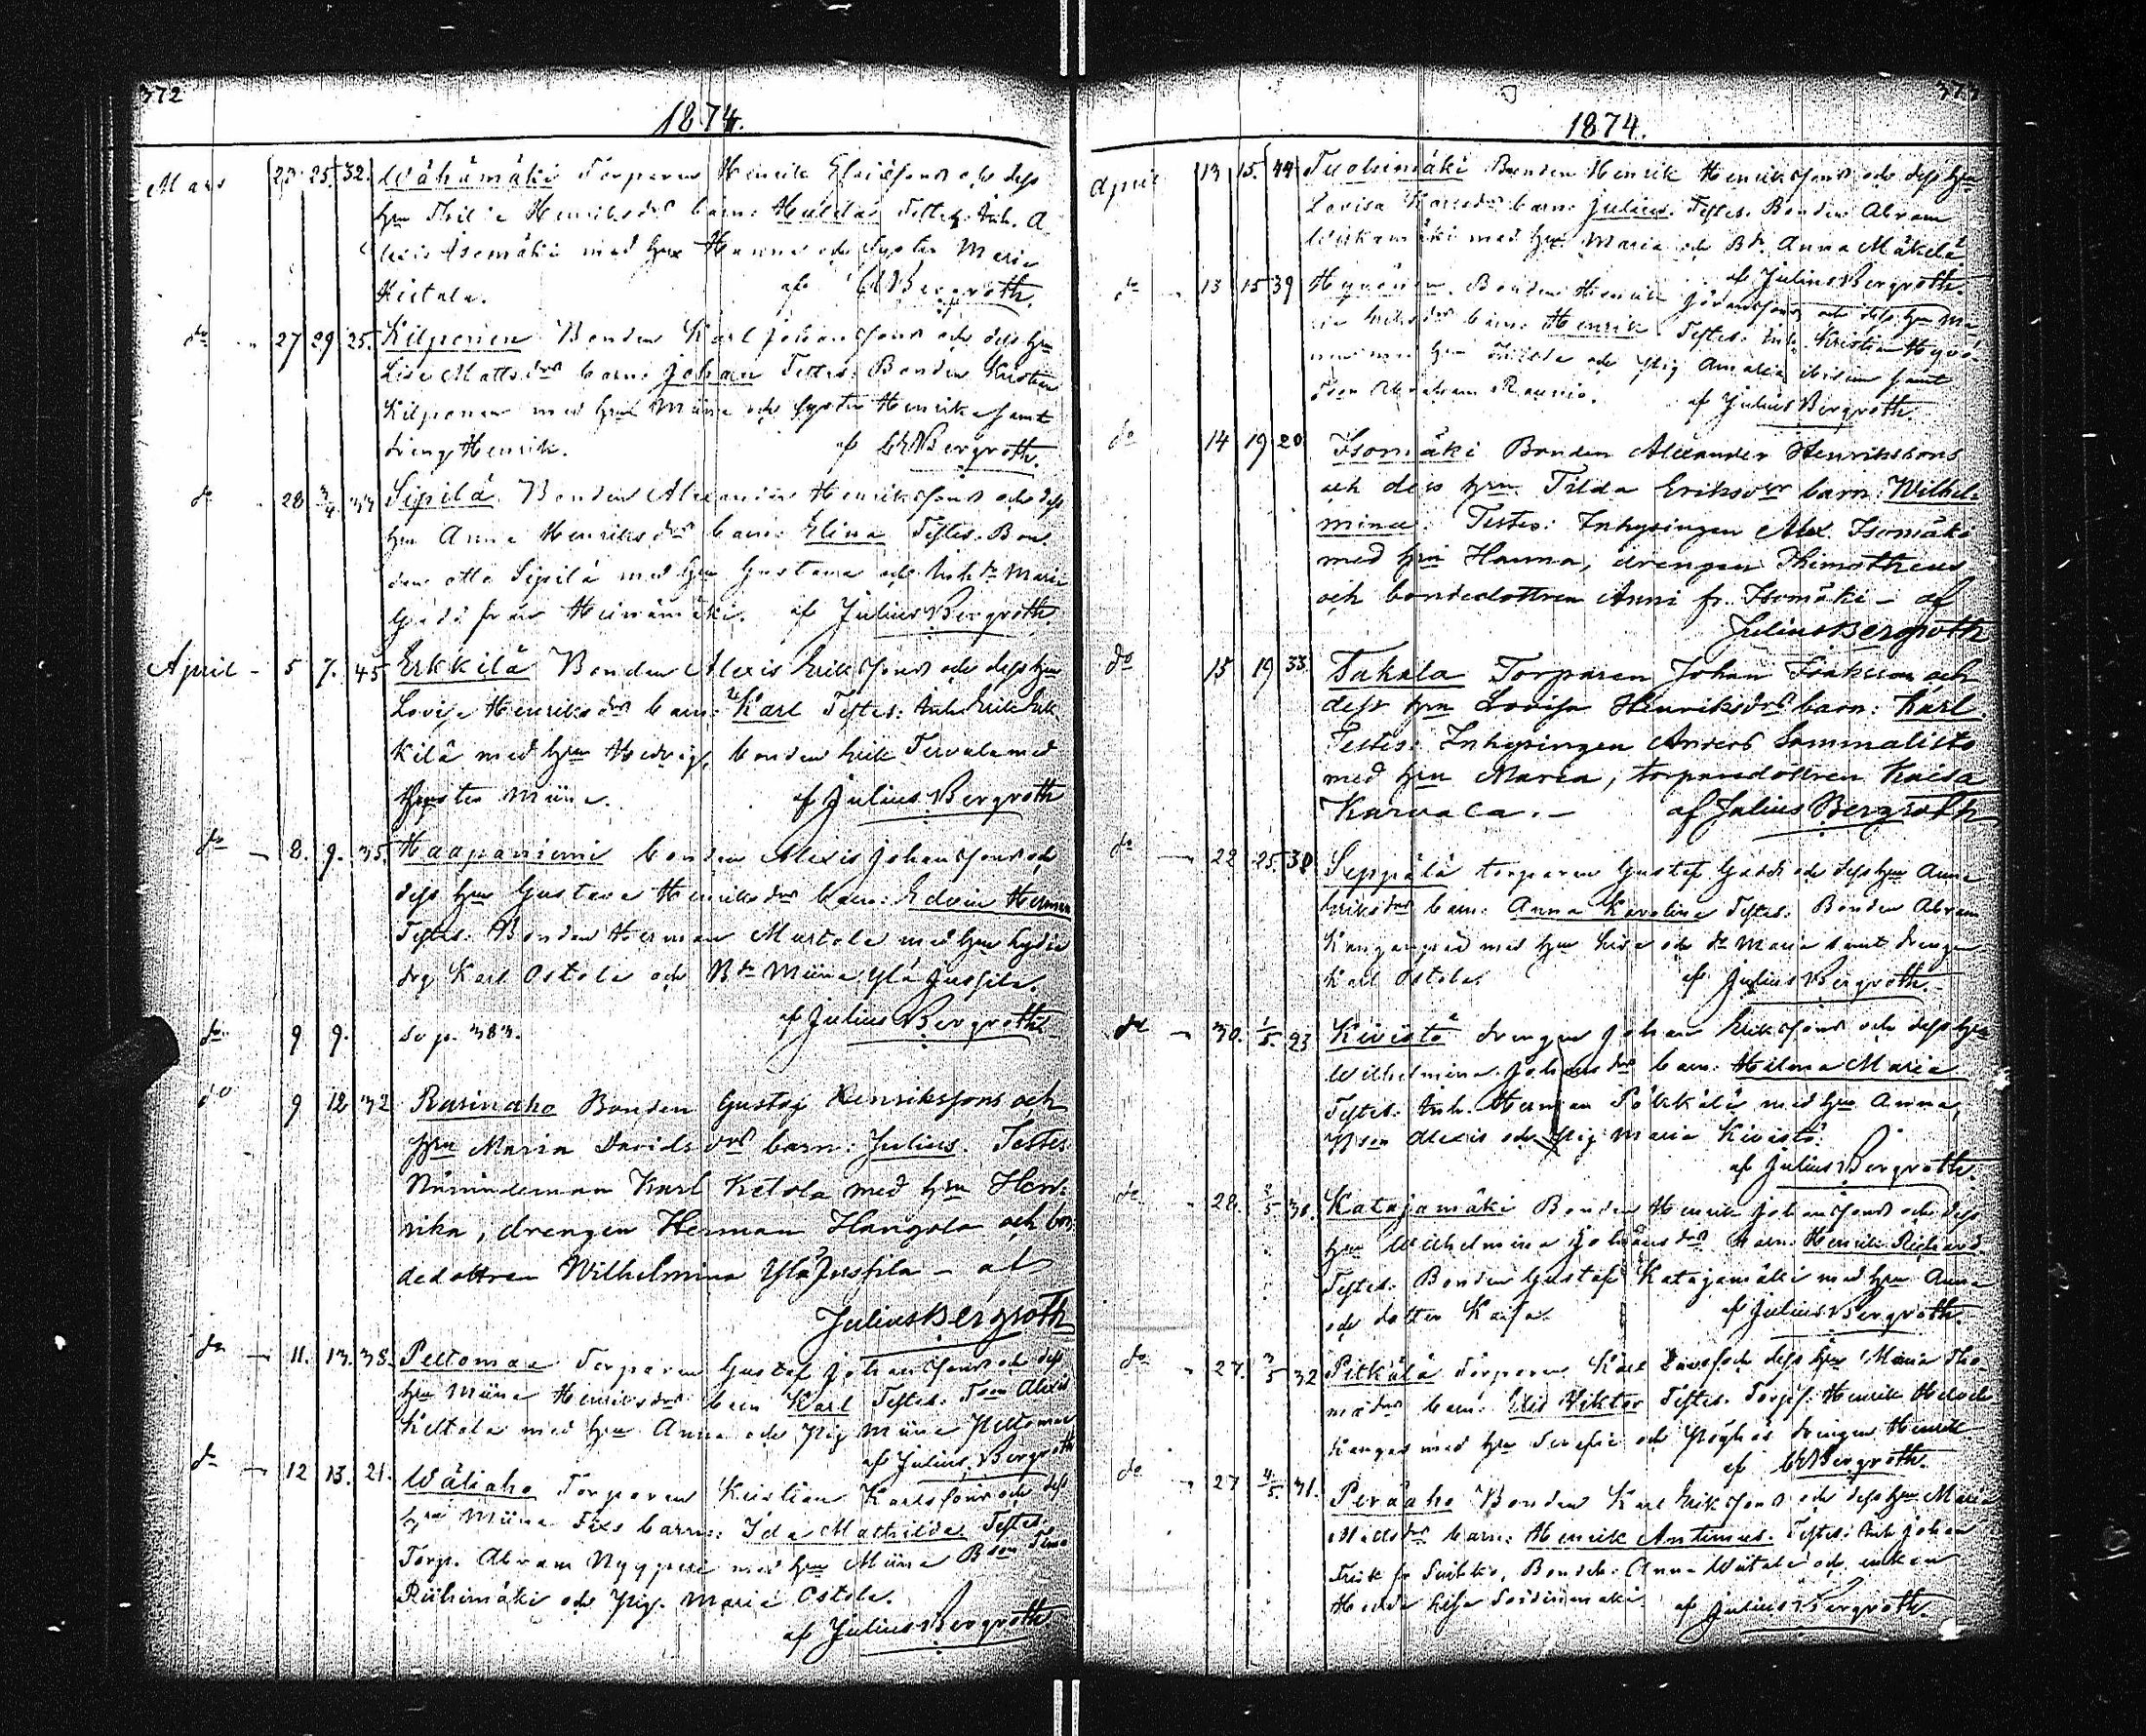 372
1874.
Mars 27. 25. 32. Wähämäki Torparen Henrik och dess
hru Henriksdr barn: Hulda Testes: Inh. A-
lexis Isomäki med hru Hanna och Syster Maria
Kietala. af Bergroth.
do 27 29 25. Kilponen Bonden Karl Johansson och dess hru
Lisa Mattsdr barn: Johan Testes: Bonden Kristian
Kilponen med hru Miina och Syster Henrika samt
dreng Henrik. af Bergroth.
do 28 3/4 33 Sipilä Bonden Alexander Henriksson och dess
hru Anna Henriksdr barn: Elina Testes: Bon-
den Otto Sipilä med hru Gustava och Inh. dr Maria
från Heinämäki. af Julius Bergroth
April - 5 7. 45 Erkkilä Bonden Alexis Eriksson och dess hru
Lovisa Henriksdr barn: Karl Testes: Inh. Erik Erk-
kilä med hru Hedvig, bonden Erik Tervala med
Syster Miina. af Julius Bergroth
do - 8. 9. 35. Haapaniemi bonden Alexis Johansson och
dess hru Gustava Henriksdr barn: Edvin Herman
Testes: Bonden Herman Martola med hru Lydia
drg Karl Ostola och Bdr Miina Ylä Jussila.
af Julius Bergroth
do 9 9. se p. 383.
do 9 12 32 Rasinaho Bonden Gustaf Henriksson och
hru Maria Davidsdr barn: Julius. Testes
Nämndeman Karl Ketola med hru Hen-
rika, drengen Herman Hangola och bon-
dedottren Wilhelmina Ylä Jussila - af
Julius Bergroth
do - 11. 13. 38. Peltomaa Torparen Gustaf Johansson och dess
hru Miina Henriksdr barn Karl Testes: Alexis
Kiltola med hru Anna och Pig Miina Peltomaa
af Julius Bergroth
do - 12 13. 21. Wäliaho Torparen Kristian Karlsson och dess
hru Miina barn: Ida Mathilda Testes:
Torp. Abram Nyyperi med hru Miina
Riihimäki och Pig. Maria Ostola.
af Julius Bergroth
373
1874.
April 13 15. 44 Tuohimäki Bonden Henrik Henriksson och dess hru
Lovisa barn: Julius. Testes: Bonden Abram
med hru Maria och Bdr Anna Mäkelä
af Julius Bergroth.
do 13 15 39 Hyvönen Bonden Henrik Göransson och dess hru Ma-
ria Eriksdr barn: Henrik Testes: Inh. Kristian Hyvö-
nen med hru och Pig Amalia ibidem samt
Abraham Raunio. af Julius Bergroth.
do 14 19 20 Isomäki Bonden Alexander Henrikssons
och dess hru Tilda Eriksdr barn: Wilhel-
mina. Testes: Inhysingen Alex. Isomäki
med hru Hanna, drengen Thimotheus
och bondedottren Anni fr. Isomäki - af
Julius Bergroth
do 15 19 33 Takala Torparen Johan Isaksson och
dess hru Lovisa Henriksdr barn: Karl.
Testes: Inhysingen Anders Sammalisto
med hru Maria, torparedottren Kaisa
Karvala. - af Julius Bergroth
do - 22 25. 38 Seppälä torparen Gustaf och dess hru Anna
Eriksdr barn: Anna Karolina Testes: Bonden Abram
med hru Lisa och dr Maria samt drengen
Karl Ostola. af Julius Bergroth
do - 30. 1/5. 23 Kivistö drengen Johan Eriksson och dess hru
Wilhelmina Johansdr barn: Hilma Maria
Testes: Inh. Herman Pölkälä med hru Anna,
Alexis och Pig Maria Kivistö.
af Julius Bergroth.
do 28. 3/5 38. Katajamäki Bonden Henrik Johansson och dess
hru Wilhelmina Johansdr barn: Henrik Richard.
Testes: Bonden Gustaf Katajamäki med hru Anna
och dotter Kaisa. af Julius Bergroth.
do 27. 3/5 32 Pitkälä Torparen Karl och dess hru Maria Tho-
madr barn: Viktor Testes: Henrik
Kangas med hru Serafia och drengen Henrik
af Bergroth.
do 27 4/5. 31. Peräaho Bonden Karl Eriksson och dess hru Maria
Mattsdr barn: Henrik Antinus. Testes: Inh Johan
Anna och enkan
af Julius Bergroth.